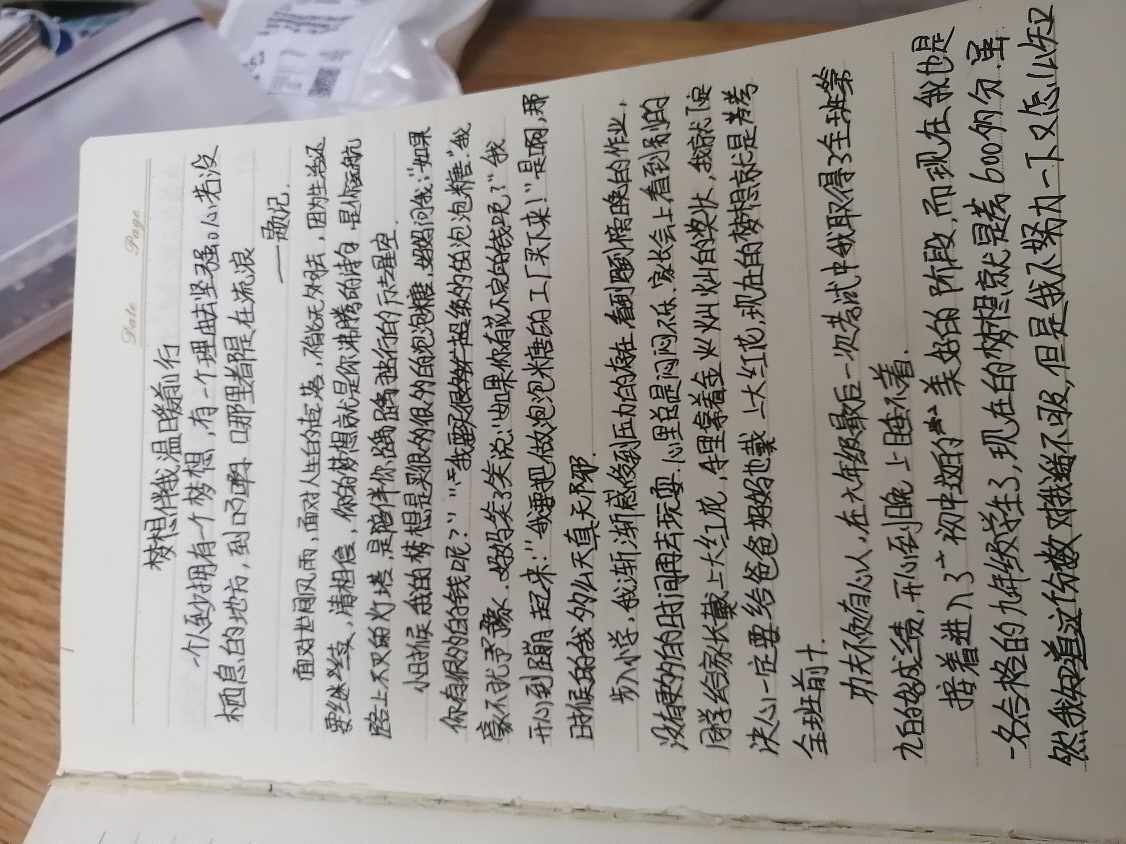 Date Page
梦想伴我温暖前行
一个人至少拥有一个梦想,有一个理由去坚强。心若没
栖息的地方,到哪里都是在流浪
——题记.
面对世间风雨,面对人生的起落,不能无力,因为生活还
要继续,请相信,你的梦想就是你沸腾的诗句,是你远航
路上不灭的灯塔,是陪伴你踽踽独行的灯星空.
小时候我的梦想是买很多很多的泡泡糖.妈妈问我:"如果
你有很多的钱呢?""我要买好多好多超级多的泡泡糖."我
毫不犹予豫.妈妈笑了笑说:"如果你有花不完的钱呢?"我
开心到蹦起来:"我要把做泡泡糖的工厂买下来!"是啊,那
时候的我多么天真无邪.
步入小学,我渐渐感受到压力的存在,看到眼倦的作业,
没有更多的时间再去玩耍.心里总是闷闷不乐.家长会上看到别的
同学给家长戴上大红花,手里拿着金灿灿的奖状,我就下定
决心一定要给爸爸妈妈也戴上大红花,现在的梦想就是考
全班前十.
功夫不负有心人,在六年级最后一次考试中我取得了全班第
九的好成绩,开心到晚上睡不着.
接着进入了初中这美好的阶段,而现在我也是
一名合格的九年级学生了,现在的梦想就是考600多分,虽
然我知道这分数对我遥不可及,但是我不努力一下又怎么知